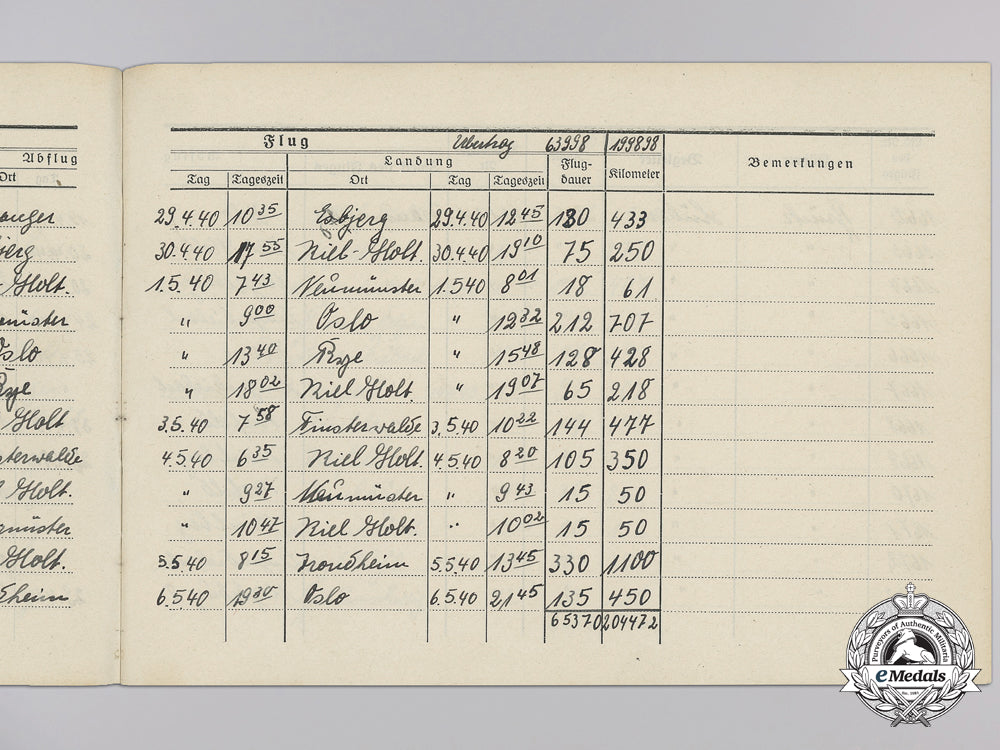 Abflug
Ort
anger
jerg
Holt.
münster
Oslo
Rye
Holt
sterwalde
Holt.
münster
Holt.
dheim
Flug Übertrag 63998 199898
Landung Flug- Kilometer Bemerkungen
Tag Tageszeit Ort Tag Tageszeit dauer
29.4.40 10 35 Esbjerg 29.4.40 12 45 130 433
30.4.40 17 55 Kiel-Holt. 30.4.40 19 10 75 250
1.5.40 7 43 Neumünster 1.5.40 8 01 18 61
" 9 00 Oslo " 12 32 212 707
" 13 40 Rye " 15 48 128 428
" 18 02 Kiel Holt. " 19 07 65 218
3.5.40 7 58 Finsterwalde 3.5.40 10 22 144 477
4.5.40 6 35 Kiel Holt. 4.5.40 8 20 105 350
" 9 27 Neumünster " 9 43 15 50
" 10 47 Kiel Holt. " 10 02 15 50
5.5.40 8 15 Trondheim 5.5.40 13 45 330 1100
6.5.40 19 30 Oslo 6.5.40 21 45 135 450
65370 204472
Purveyors of Authentic Militaria
eMedals